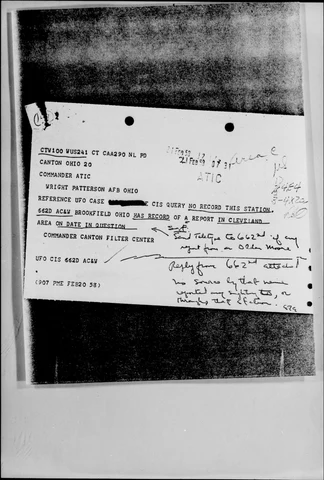 CTW100 WUS241 CT CAA290 NL PD
CANTON OHIO 20
COMMANDER ATIC
WRIGHT PATTERSON AFB OHIO
ATIC
REFERENCE UFO CASE CIS QUERY NO RECORD THIS STATION.
662D AC&W BROOKFIELD OHIO HAS RECORD OF A REPORT IN CLEVELAND
AREA ON DATE IN QUESTION
COMMANDER CANTON FILTER CENTER
Send Teletype to 662nd if any
report from on Olden Moore
UFO CIS 662D AC&W
Reply from 662nd attached
no source by that name
reported any sighting to, or
through that station.
(907 PME FEB20 58)